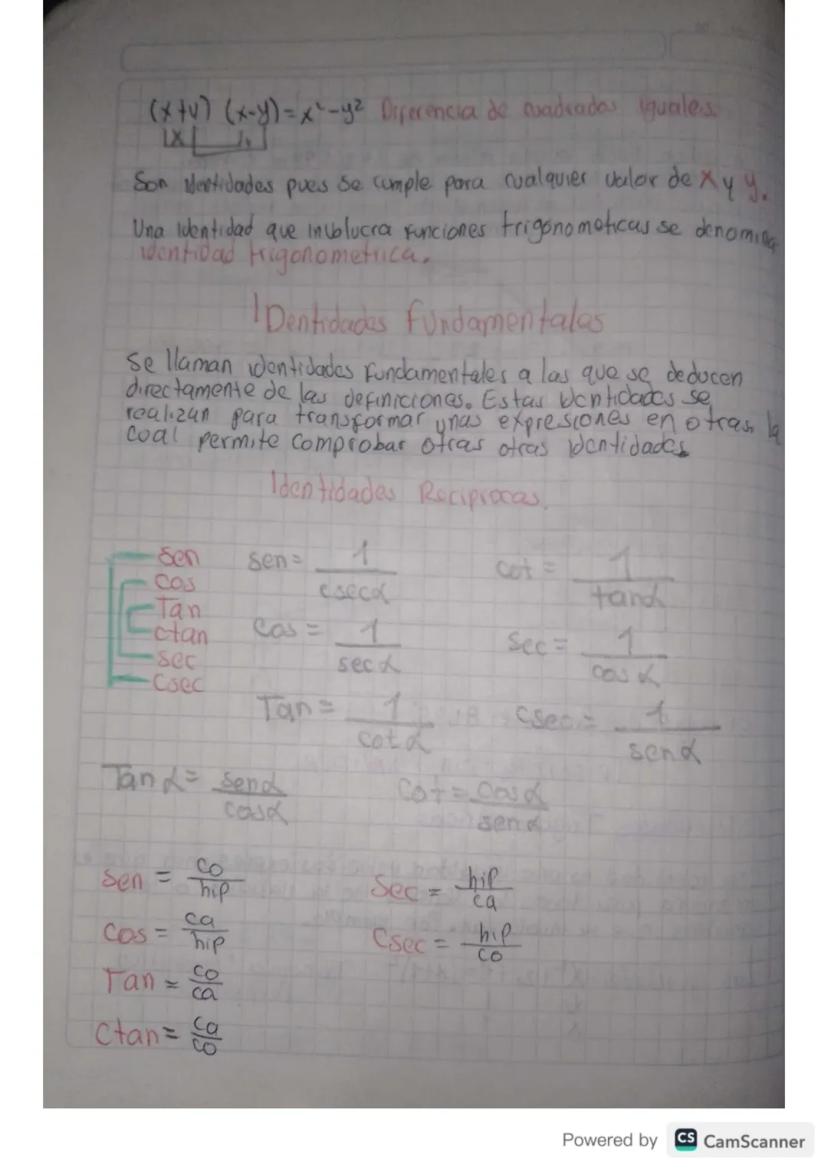 (x+y) (x-y)=x²-y² Diferencia de cuadrados iguales
Son identidades pues se cumple para cualquier valor de x y y.
Una identidad que involucra funciones trigonometicas se denomina
identidad trigonometrica.
IDentidades fundamentales
Se llaman identidades fundamentales a las que se deducen
directamente de las definiciones. Estas identidades se
realizan para transformar unas expresiones en otras, la
coal permite comprobar otras otras identidades
Identidades Reciprocas.
sen
cos
Tan
ctan
sec
Csec
sen = 1/csecα cot = 1/tanα
Cos = 1/secα Sec = 1/cosα
Tan = 1/cotα Csec = 1/senα
Tanα = senα/cosα Cot = cosα/senα
Sen = co/hip Sec = hip/ca
Cos = ca/hip Csec = hip/co
Tan = co/ca
Ctan = ca/co
Powered by CS CamScanner